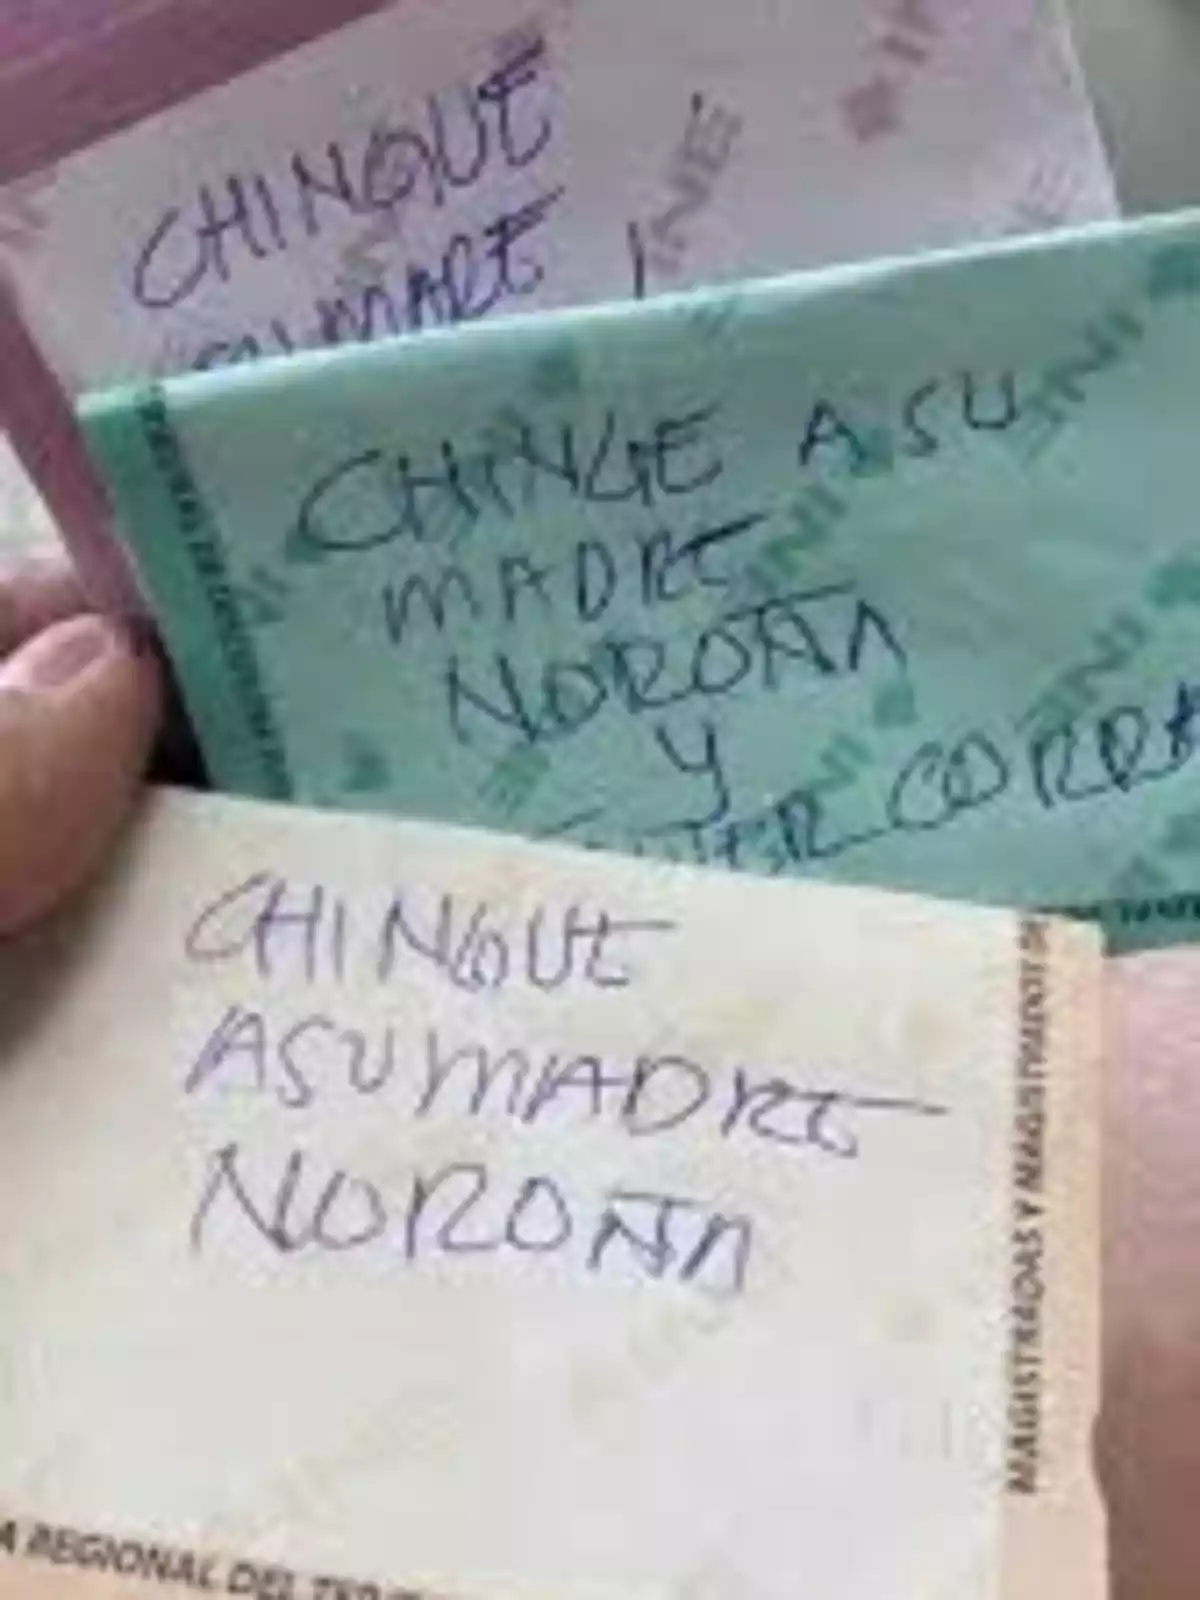 CHINGUE
MADRE
INE
INE
CHINGE ASU
MADRE
NOROÑA
Y
INE
INE
INE
CHINGUE
ASUMADRE
NOROÑA
MAGISTRADAS Y MAGISTRADOS
A REGIONAL DEL